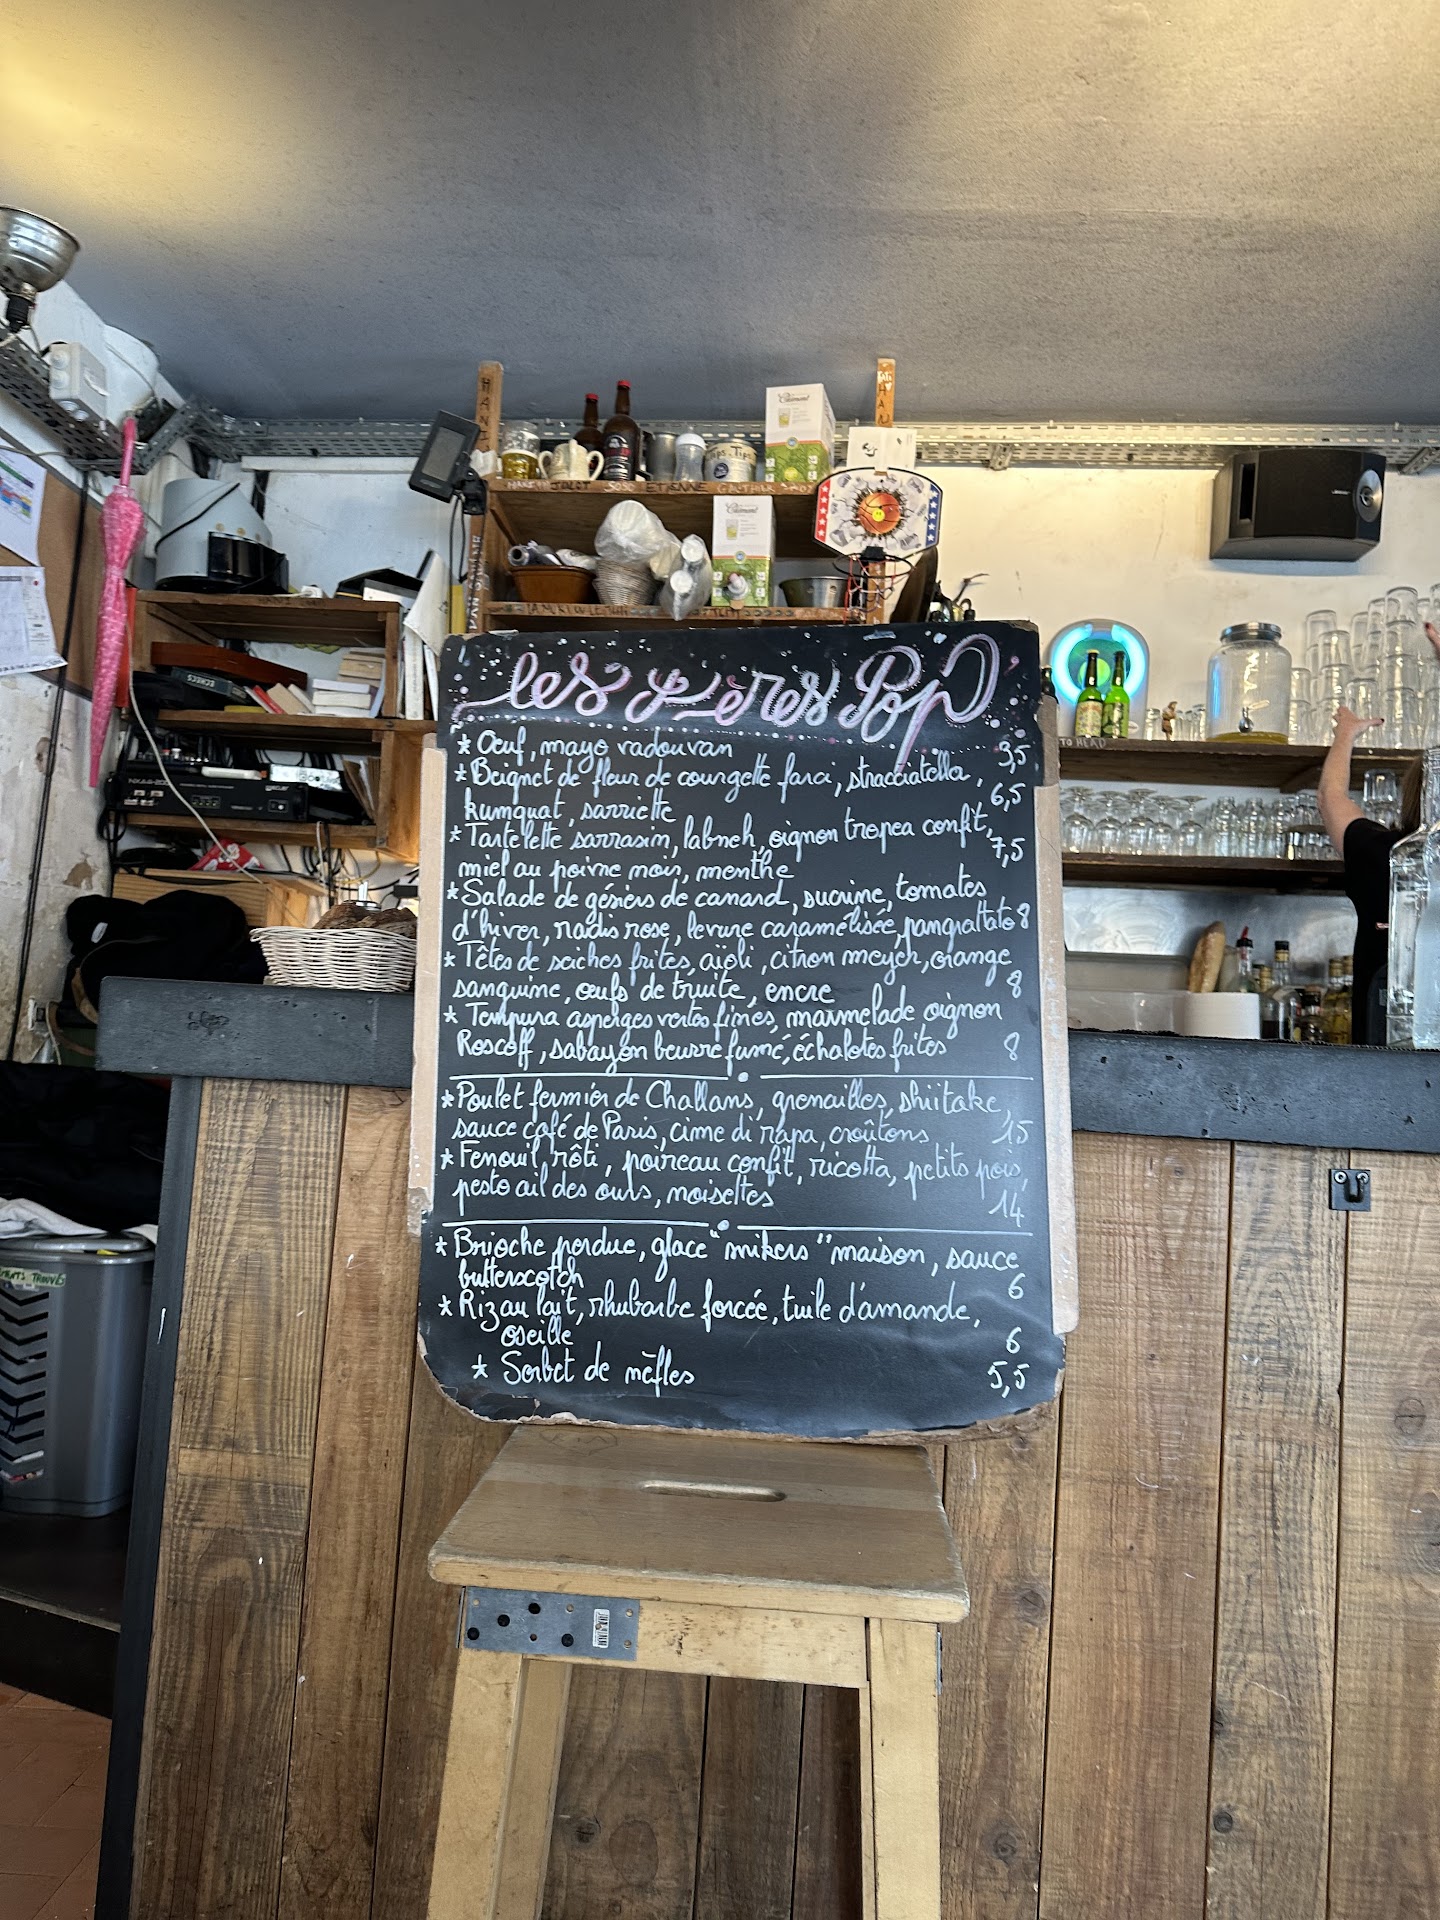 les Pères Pop
* Œuf, mayo vadouvan 3,5
* Beignet de fleur de courgette farci, stracciatella,
kumquat, sarriette 6,5
* Tartelette sarrasin, labneh, oignon tropea confit,
miel au poivre noir, menthe 7,5
* Salade de gésiers de canard, sucrine, tomates
d'hiver, radis rose, levure caramélisée, pangrattato 8
* Têtes de seiches frites, aïoli, citron meyer, orange
sanguine, œufs de truite, encre 8
* Tempura asperges vertes fines, marmelade oignon
Roscoff, sabayon beurre fumé, échalotes frites 8
* Poulet fermier de Challans, grenailles, shiitake,
sauce café de Paris, cime di rapa, croûtons 15
* Fenouil rôti, poireau confit, ricotta, petits pois,
pesto ail des ours, noisettes 14
* Brioche perdue, glace "mikers" maison, sauce
butterscotch 6
* Riz au lait, rhubarbe forcée, tuile d'amande,
oseille 6
* Sorbet de nèfles 5,5
ECHECS
BOSE